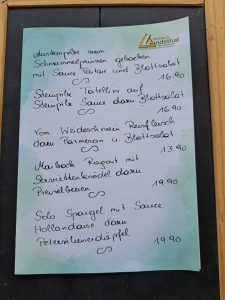 Landsthal
Steinpilze vom
Schwammerlprinzen gebacken
mit Sauce Tartar und Blattsalat
16.90
Steinpilz Tortellini auf
Steinpilz Sauce dazu Blattsalat
16.90
Vom Weideschwein Reisfleisch
dazu Parmesan u. Blattsalat
13.90
Maibock Ragout mit
Serviettenknödel dazu
Preiselbeeren
19.90
Solo Spargel mit Sauce
Hollandaise dazu
Petersilienerdäpfel
19.90